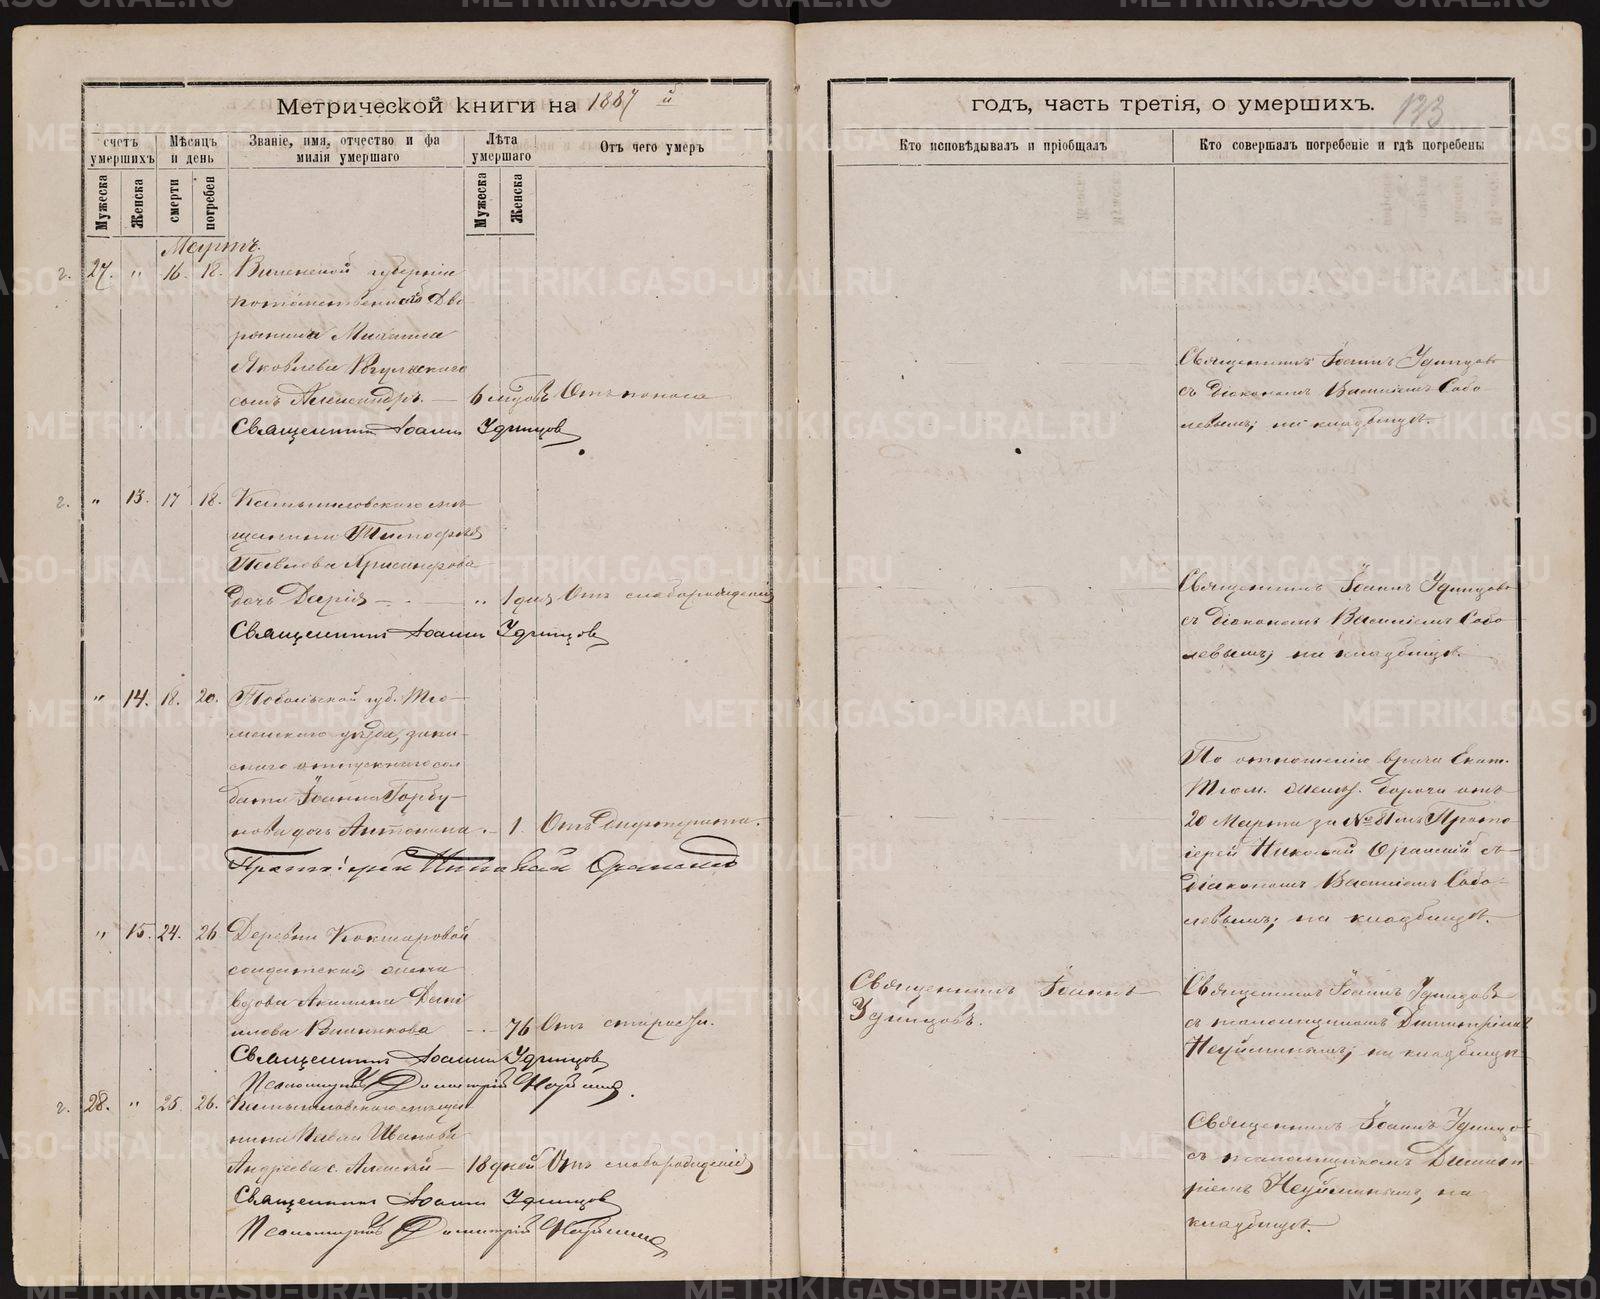 Метрической книги на 1887 й
годъ, часть третія, о умершихъ. 123
счетъ умершихъ
Мѣсяцъ и день
Званіе, имя, отчество и фа
милія умершаго
Лѣта умершаго
Отъ чего умеръ
Кто исповѣдывалъ и пріобщалъ
Кто совершалъ погребеніе и гдѣ погребены
Мужеска
Женска
смерти
погребен
Мужеска
Женска
Мартъ.
г. 27. " 16. 18. Виленской губерніи
потомственнаго Дво
рянина Михаила
Яковлева
сынъ Александръ. — 6 мѣсяц. Отъ поноса
Священникъ Іоаннъ Удинцов
Священникъ Іоаннъ Удинцовъ
съ діакономъ Василіемъ Собо
левымъ; на кладбищѣ.
г. " 13. 17 18. Камышловскаго мѣ
щанина Тимофея
Павлова
дочь Дарія — " 1 дня Отъ слаборожденія
Священникъ Іоаннъ Удинцов
Священникъ Іоаннъ Удинцовъ
съ діакономъ Василіемъ Собо
левымъ; на кладбищѣ.
" 14. 18. 20. Тобольской губ. Тю
менскаго уѣзда, запа
снаго отпускнаго сол
дата Іоанна Горбу
нова дочь Антонина. — 1. Отъ Дифтерита.
Протоіерей Николай
По отношенію врача Екат.
Тюм. желѣз. дороги отъ
20 Марта за № Прото
іерей Николай съ
діакономъ Василіемъ Собо
левымъ; на кладбищѣ.
" 15. 24. 26 Деревни Кокшаровой
солдатская жена
вдова Акилина Дани
лова — 76 Отъ старости.
Священникъ Іоаннъ Удинцов
Псаломщикъ Димитрій Неуймин.
Священникъ Іоаннъ
Удинцовъ.
Священникъ Іоаннъ Удинцовъ
съ псаломщикомъ Димитріемъ
Неуйминымъ; на кладбищѣ
г. 28. " 25. 26. Камышловскаго мѣща
нина Павла Иванова
Андреева с. Алексѣй — 18 дней Отъ слаборожденія
Священникъ Іоаннъ Удинцов
Псаломщикъ Димитрій Неуймин
Священникъ Іоаннъ Удинцо
съ псаломщикомъ Димит
ріемъ Неуйминымъ, на
кладбищѣ.
METRIKI.GASO-URAL.RU